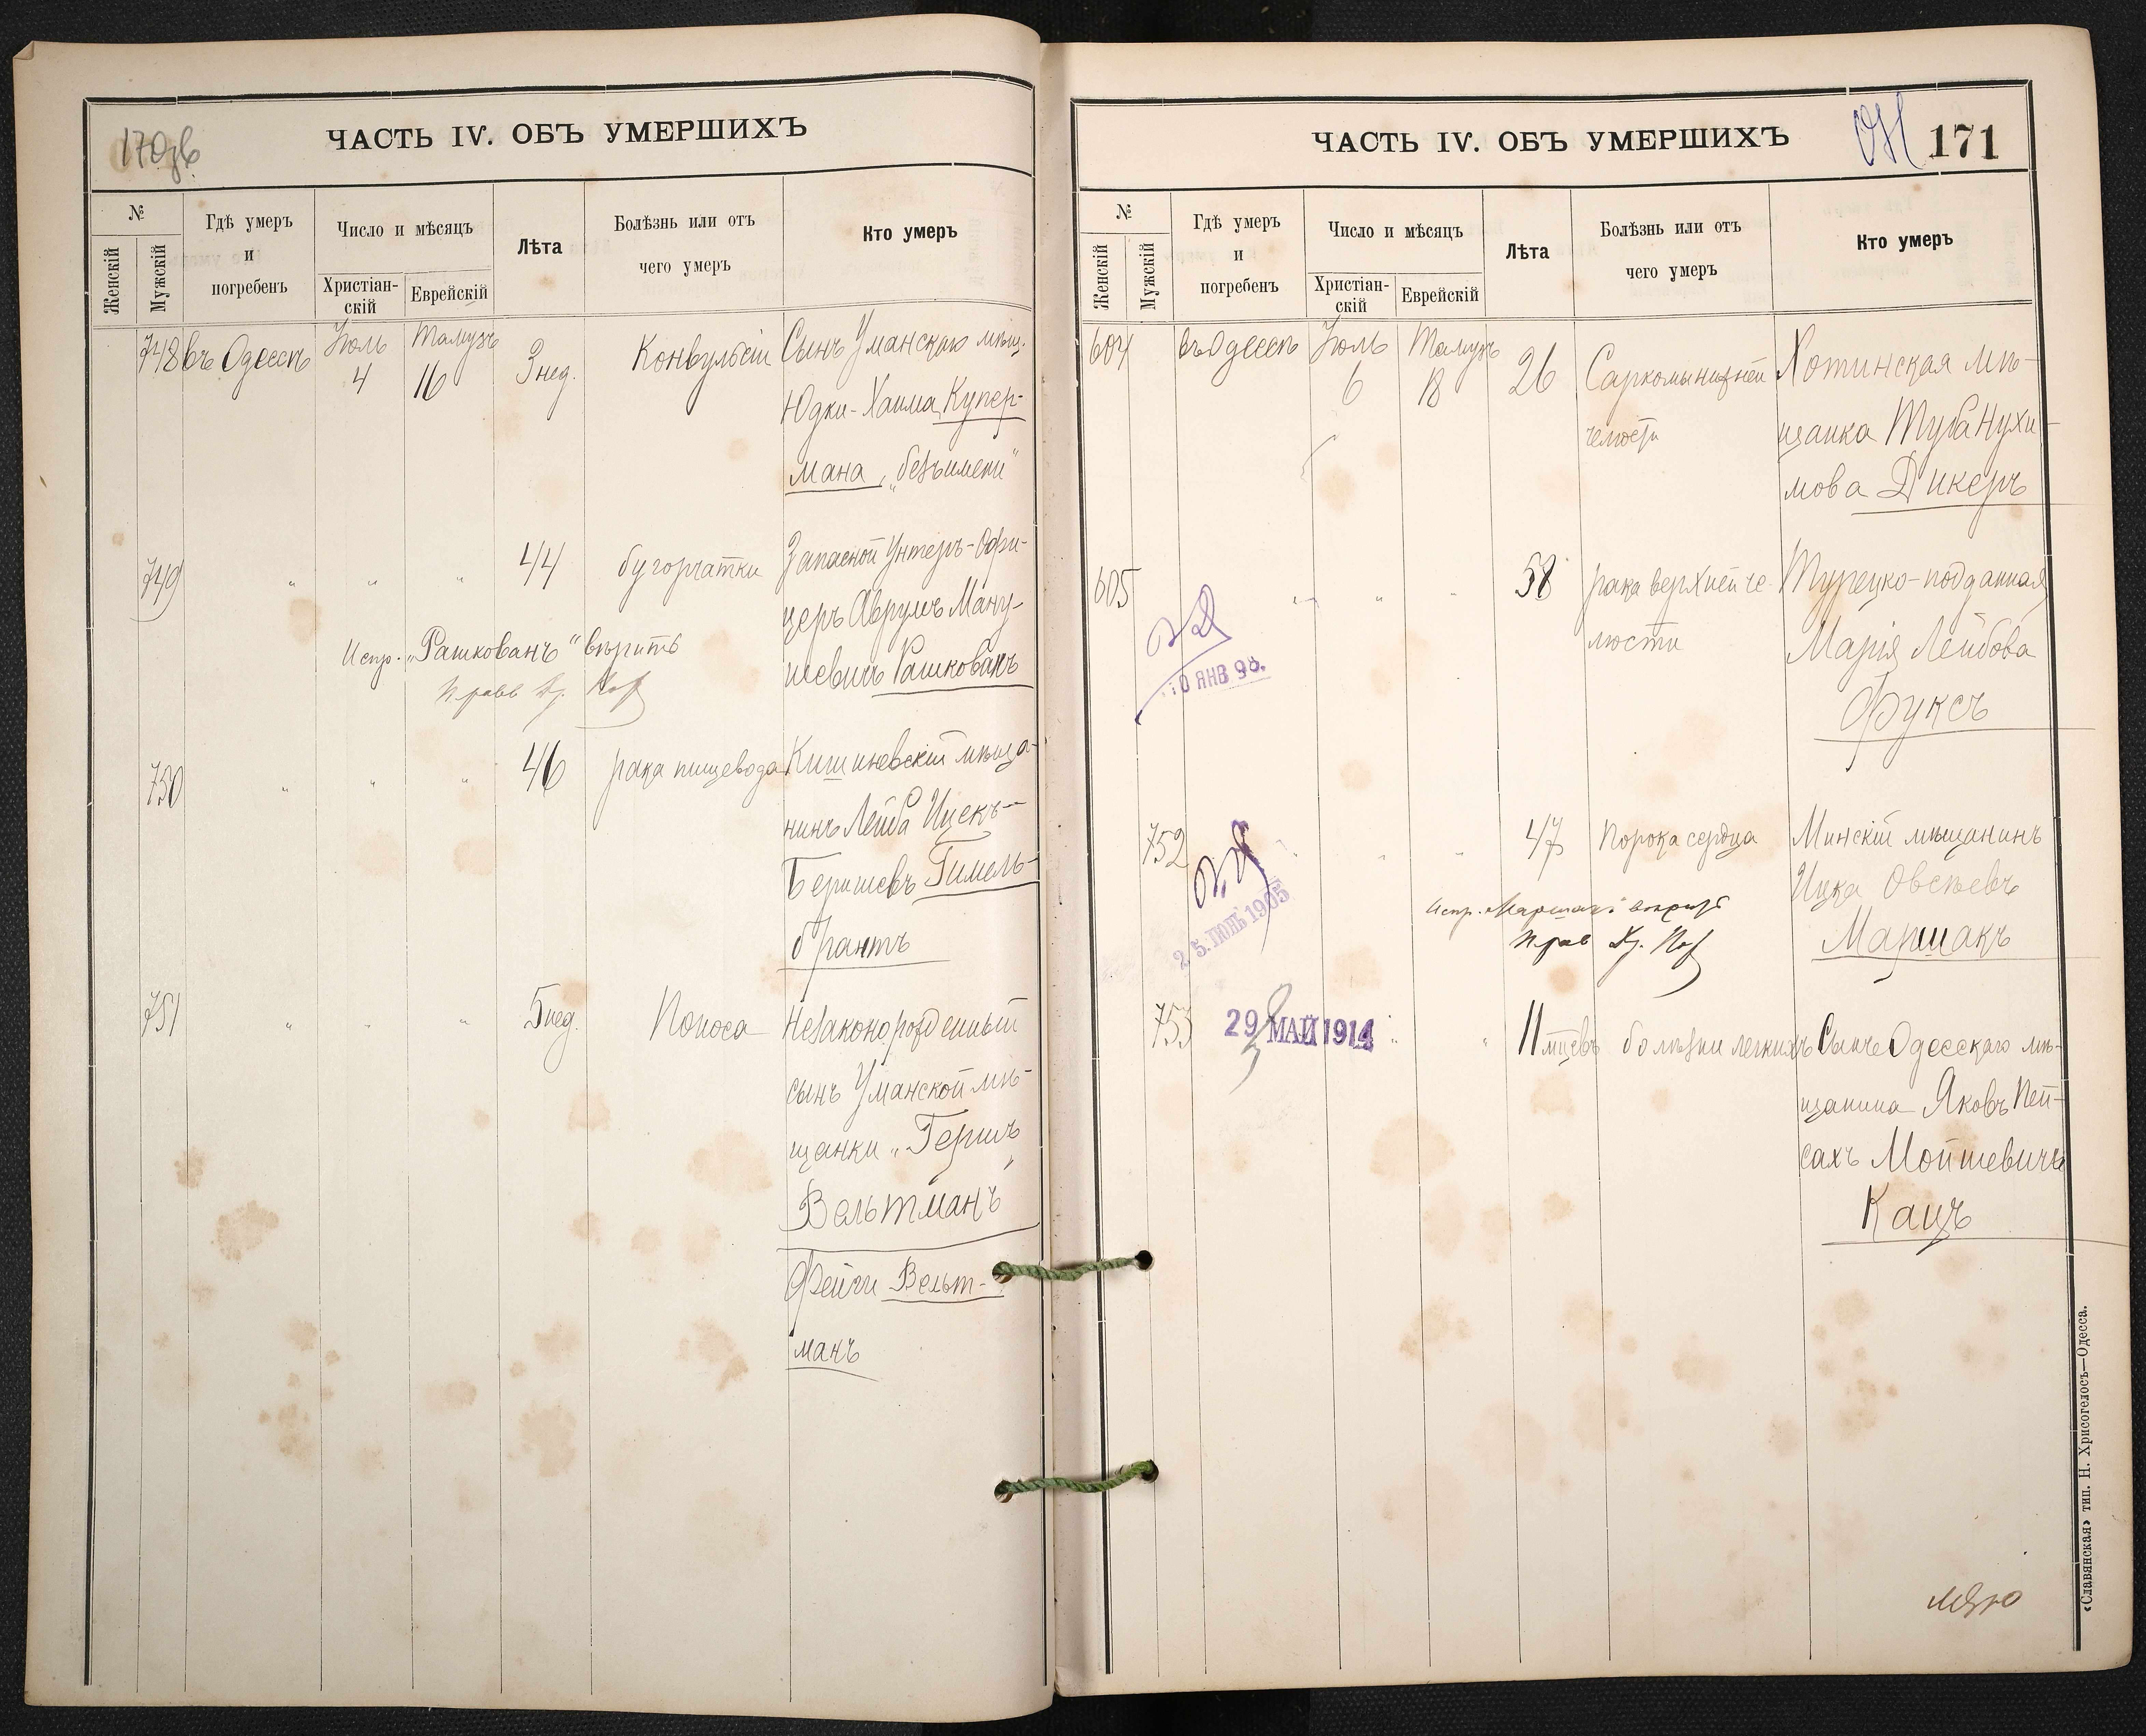 170об
ЧАСТЬ IV. ОБЪ УМЕРШИХЪ
№
Женскій
Мужскій
Гдѣ умеръ
и
погребенъ
Число и мѣсяцъ
Христіан-
скій
Еврейскій
Лѣта
Болѣзнь или отъ
чего умеръ
Кто умеръ
748 въ Одессѣ Іюль Тамузъ
4 16 3 нед. Конвульсіи Сынъ Уманскаго мѣщ.
Юдки-Хаима Купер-
мана „безъимени“
749 „ „ „ 44 бугорчатки Запасной Унтеръ-Офи-
церъ Аврумъ Ману-
шевичъ Рашкованъ
Испр. „Рашкованъ“ вѣрить
750 „ „ „ 46 рака пищевода Кишиневскій мѣща-
нинъ Лейба Ицекъ-
Беришевъ Гимель-
брантъ
751 „ „ „ 5 нед. Поноса Незаконорожденный
сынъ Уманской мѣ-
щанки „Гершъ
Вельтманъ
Фейги Вельт-
манъ
ЧАСТЬ IV. ОБЪ УМЕРШИХЪ
171
№
Женскій
Мужскій
Гдѣ умеръ
и
погребенъ
Число и мѣсяцъ
Христіан-
скій
Еврейскій
Лѣта
Болѣзнь или отъ
чего умеръ
Кто умеръ
604 въ Одессѣ Іюль Тамузъ
6 18 26 Саркомы нижней Хотинская мѣ-
челюсти щанка Туба Нухи-
мова Дикеръ
605 „ „ „ 58 рака верхней че- Турецко-подданная
люсти Марія Лейбова
Фуксъ
10 ЯНВ 98.
752 „ „ „ 47 Порока сердца Минскій мѣщанинъ
Ицка Овсѣевъ
Маршакъ
Испр. „Маршакъ“ вѣрить
25. ІЮНЬ 1905
753 29 МАЙ 1914 „ „ 11 мцевъ болѣзни легкихъ Сынъ Одесскаго мѣ-
щанина Яковъ Пей-
сахъ Мойшевичъ
Кацъ
«Славянская» тип. Н. Хрисогелосъ—Одесса.